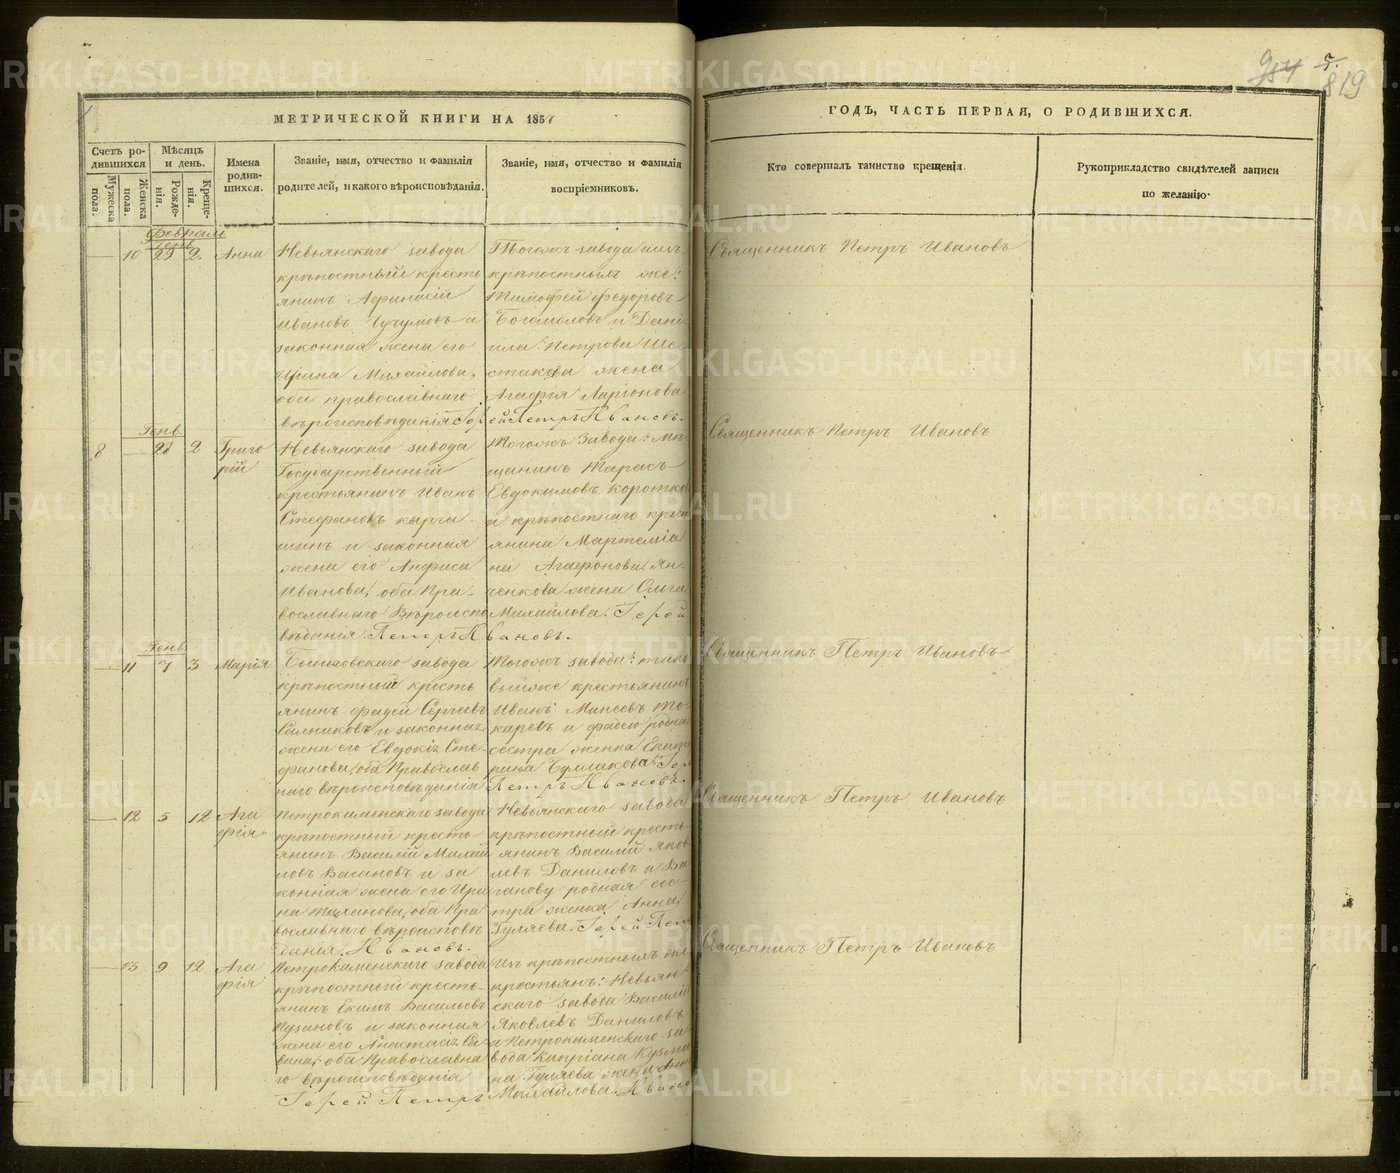 984 7.
819
МЕТРИЧЕСКОЙ КНИГИ НА 1857
ГОДЪ, ЧАСТЬ ПЕРВАЯ, О РОДИВШИХСЯ.
Счетъ ро-
дившихся
Мужеска
пола.
Женска
пола.
Мѣсяцъ
и день.
Рожде-
нія.
Креще-
нія.
Имена
родив-
шихся.
Званіе, имя, отчество и фамилія
родителей, и какого вѣроисповѣданія.
Званіе, имя, отчество и фамилія
воспріемниковъ.
Кто совершалъ таинство крещенія.
Рукоприкладство свидѣтелей записи
по желанію.
Февраль
Генв.
10 29 2. Анна
Невьянскаго завода
крѣпостный кресть
янинъ Афанасій
Ивановъ Чугуновъ а
законная жена его
Ирина Михайлова,
оба православнаго
вѣроисповѣданія. Іер
Тогожъ завода изъ
крѣпостныхъ же:
Тимофей Федоровъ
Богомоловъ и Дані
ила Петрова Ше
стакова жена
Агафія Ларіонова
ей Петръ Ивановъ.
Священникъ Петръ Ивановъ
Генв.
8 28 2 Григо
рій
Невьянскаго завода
Государственный
крестьянинъ Иванъ
Стефановъ Карга
шинъ и законная
жена его Анфиса
Иванова, оба Пра-
вославнаго Вѣроиспо
вѣданія. Петръ Ивановъ.
Тогожъ Завода: мѣ
щанинъ Тарасъ
Евдокимовъ Коротков
а крѣпостнаго кресть
янина Мартемія
на Агафонова Ян-
ченкова жена Ольга
Михайлова. Іерей
Священникъ Петръ Ивановъ
Генв.
11 7 3 Марія
Быньговскаго завода
крѣпостный кресть
янинъ Фадей Сергѣевъ
Салниковъ и законная
жена его Евдокія Сте-
фанова, оба Православ
наго вѣроисповѣданія
Тогожъ завода: тако
вый же крестьянинъ
Иванъ Минеевъ То-
каревъ и Фадею родная
сестра женка Екате
рина Булакова. Іер
Петръ Ивановъ.
Священникъ Петръ Ивановъ
12 5 12 Ага
фія
Петрокаменскаго завода
крѣпостный кресть-
янинъ Василій Михай
ловъ Вагановъ и за
конная жена его Ири
на Миланова, оба Пра
вославнаго вѣроисповѣ
данія. Ивановъ.
Невьянскаго завода
крѣпостный кресть-
янинъ Василій Яков
левъ Даниловъ а Ва
ганову родная сес
тра женка Анна
Гуляева. Іерей Петръ
Священникъ Петръ Ивановъ
13 9 12 Ага
фія
Петрокаменскаго завода
крѣпостный кресть-
янинъ Екимъ Васильевъ
Пузановъ и законная
жена его Анастасія Са
вина, оба Православна
го вѣроисповѣданія
Іерей Петръ
Изъ крѣпостныхъ же
крестьянъ: Невьян
скаго завода Василій
Яковлевъ Даниловъ
а Петрокаменскаго за
вода Кипріана Кузми
на Гуляева жена Анна
Михайлова. Ивановъ
Священникъ Петръ Ивановъ
METRIKI.GASO-URAL.RU